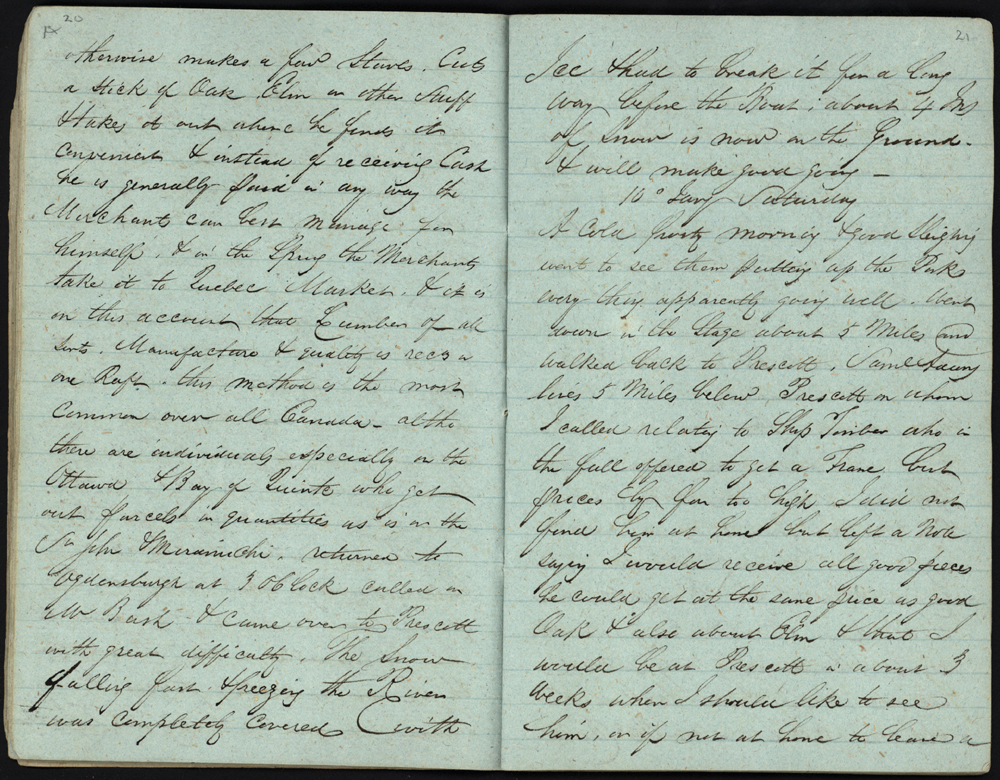 20
otherwise makes a few Staves. Cuts
a stick of Oak Elm or other Stuff
& takes it out where he finds it
Convenient & instead of receiving Cash
he is generally paid in any way the
Merchant can best manage for
himself, & in the Spring the Merchants
take it to Quebec Market. & it is
on this account that Lumber of all
Sorts. Manufacture & quality is
one Raft. this method is the most
Common over all Canada - altho
there are individuals especially on the
Ottawa & Bay of Quinte who get
out parcels in quantities as is on the
St John & Miramichi. returned to
Ogdensburgh at 3 OClock called on
Mr & came over to Prescott
with great difficulty. The Snow
falling fast & freezing the River
was Completely Covered with
21
Ice & had to break it for a long
way before the Boat; about 4 Ins
of Snow is now on the Ground.
& will make good going -
10° Jany Saturday
A Cold frosty morning & good Sleighing
went to see them putting up the Pork
very they apparently going well. Went
down in the Stage about 5 Miles and
walked back to Prescott.
lives 5 Miles below Prescott on whom
I called relating to Ship Timber who in
the fall offered to get a Frame but
prices by far too high I did not
find him at home but left a Note
saying I would receive all good pieces
he could get at the same price as good
Oak & also about Elm & that I
would be at Prescott in about 3
Weeks when I should like to see
him, or if not at home to leave a